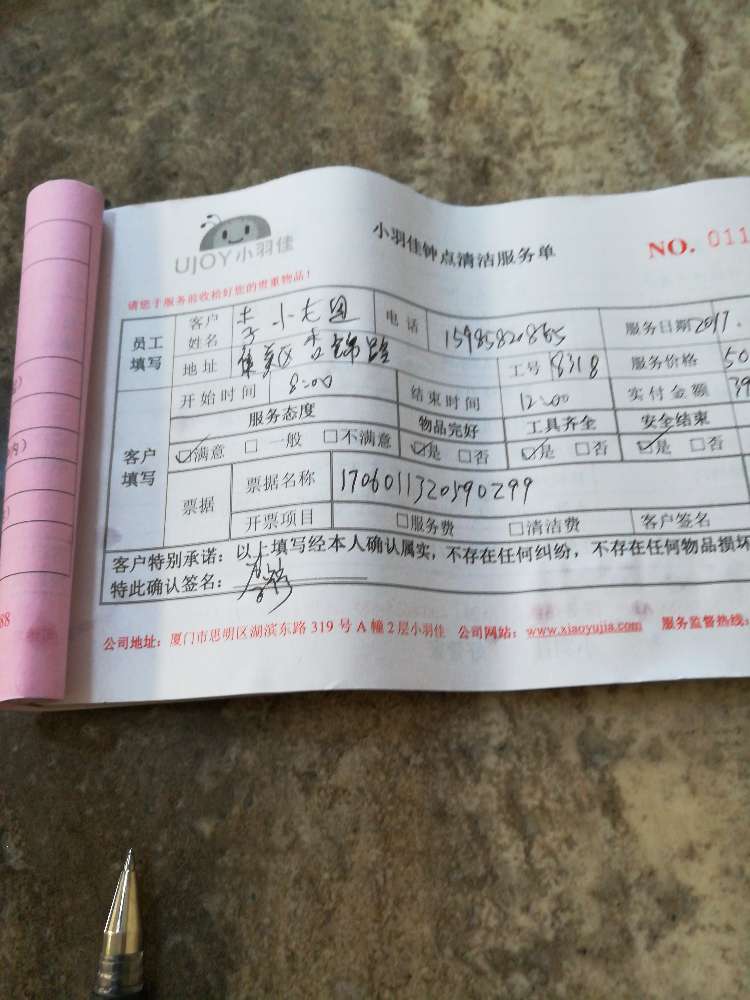 UJOY小羽佳
小羽佳钟点清洁服务单
NO. 011
请您于服务前收拾好您的贵重物品!
员工填写
客户姓名
电话 15985820865
服务日期 2017.
地址 集美区
工号 8318
服务价格 50
开始时间 8:00
结束时间 12:00
实付金额
客户填写
服务态度 物品完好 工具齐全 安全结束
☑满意 □一般 □不满意 ☑是 □否 ☑是 □否 ☑是 □否
票据
票据名称 1706011320590299
开票项目 □服务费 □清洁费 客户签名
客户特别承诺:以上填写经本人确认属实,不存在任何纠纷,不存在任何物品损坏
特此确认签名:
公司地址:厦门市思明区湖滨东路 319 号 A 幢 2 层小羽佳 公司网站:www.xiaoyujia.com 服务监督热线:
88